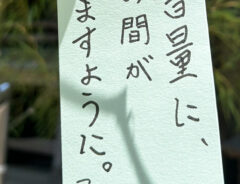 音量に、
間が
ますように。